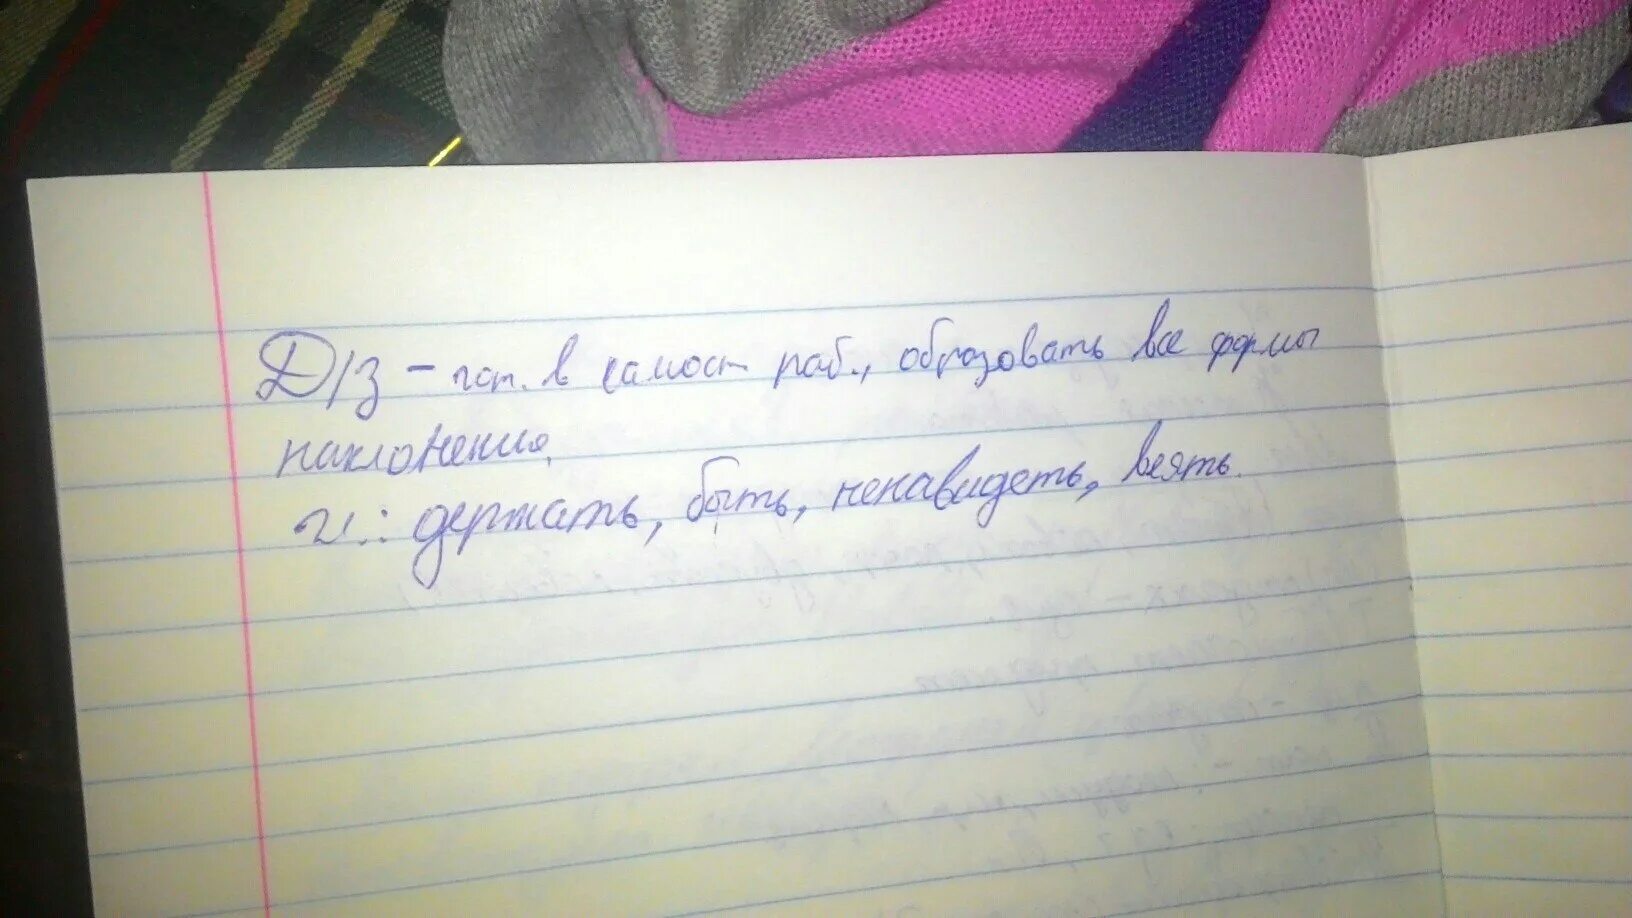 Д/З - гот. в самост раб., образовать все формы
наклонения.
г.: держать, быть, ненавидеть, веять.